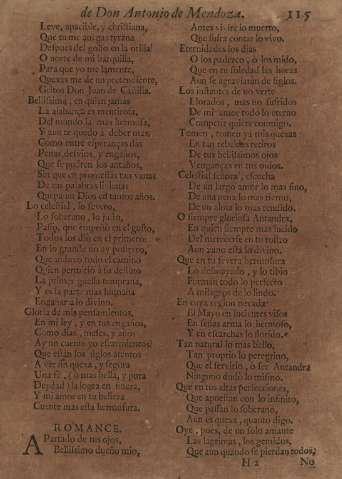 de Don Antonio de Mendoza. 115
Leve, apacible, y christiana,
Que tu me
Despues del golfo en la orilla!
O norte de mi barquilla,
Para que yo me lamente,
Quexas me de un pretendiente,
Gustos Don Juan de Castilla.
Bellissima, en quien jamás
La alabança es mentirosa,
Del mundo la mas hermosa,
Y aun te quedo à deber mas:
Como entre esperanças das
Penas, desvios, y engaños,
Que se quieren los
Sin que en promessas tan vanas
De tus palabras
Quepa un Dios en tantos años.
Lo celestial, lo severo,
Lo soberano, lo
Passo, que empeño en el gusto,
Todos los dias en el primero:
En lo grande no ay postrero,
Que anduvo todo el camino
Quien permitió à su destino
La primer
Y es la parte mas humana
Engañar à lo divino.
Gloria de mis pensamientos,
En mi ley, y en tus engaños,
Como dias, meses, y años
Ay un cuento
Que están los siglos atentos
A ver sin quexa, y segura
Una fè, ò mas bella, y pura
Deydad la logra en
Y mi amor en tu
Cuente mas esta hermosura.
ROMANCE.
A Partado de tus ojos,
Bellissimo dueño mio,
Antes viviré lo muerto,
Que sufra contar lo vivo.
Eternidades los dias
O los padezco, ò los mido,
Que en tu soledad las horas
Aun se agraviarán de siglos.
Los instantes de no verte
Llorados, mas no sufridos
De mi amor todo lo eterno
Compiten quieto conmigo.
Temen, temen ya mis quexas
En tan rebeldes retiros
De tus bellissimos ojos
Venganças en tus
Celestial señora, escucha
De un largo amor lo mas fino,
De una pena lo mas tierno,
De un alma lo mas rendido.
O siempre gloriosa Antandra,
En quien siempre mas lucido
Del merecerte en tu rostro
Aun
Que en tu severa hermosura
Lo desdeñoso, y lo tibio
Forman todo lo perfecto
A milagros de lo lindo.
En cuya region nevada
El Mayo en lucientes visos
En señas arma lo hermoso,
Y en escarchas lo florido.
Tan natural lo mas bello,
Tan proprio lo peregrino,
Que el servirlo, ò ser Antandra
Ninguno dudó lo mismo.
Que en tus altas perfecciones,
Que apuestan con lo infinito,
Que passan lo soberano,
Aun es quexa, quanto digo.
Oye, pues, de un solo amante
Las lagrimas, los gemidos,
Que aun quando se pierdan todos,
H 2 No